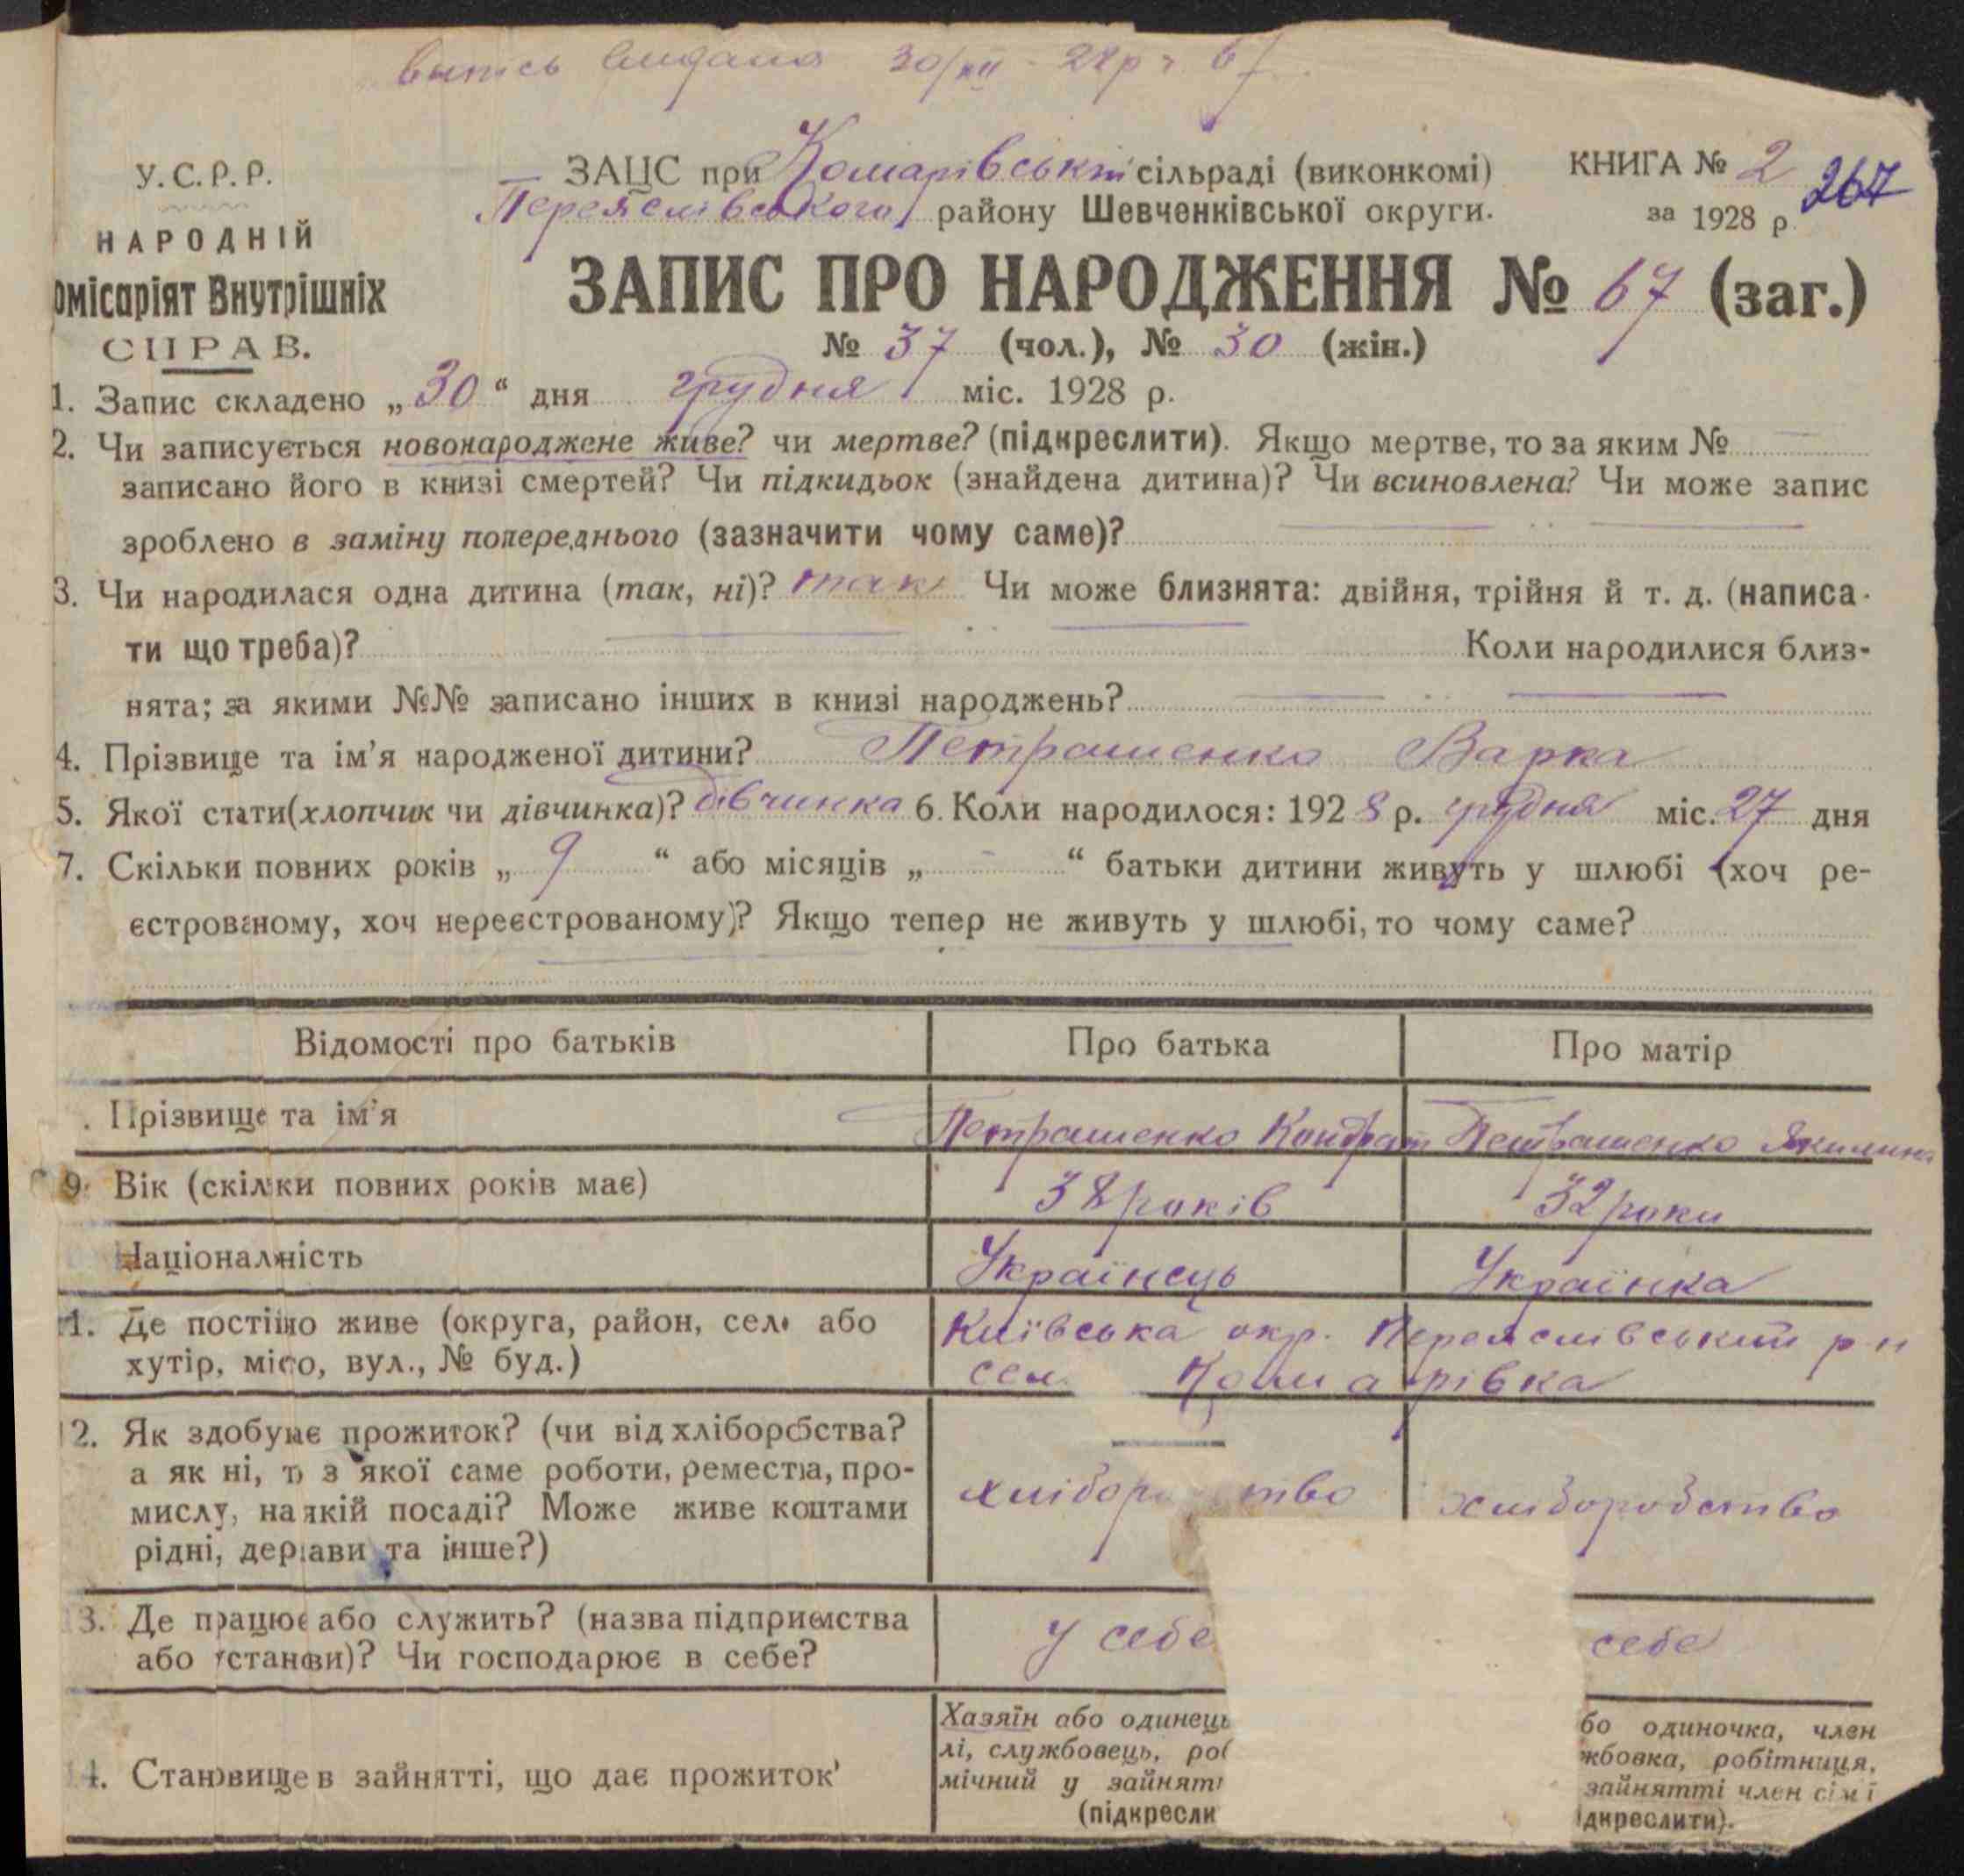 выпись видана 30/XII - 28р № 67
У.С.Р.Р.
НАРОДНІЙ
омісаріят Внутрішніх
СПРАВ.
ЗАЦС при Комарівській сільраді (виконкомі)
Переяслівського району Шевченківської округи.
КНИГА № 2
за 1928 р.
267
ЗАПИС ПРО НАРОДЖЕННЯ № 67 (заг.)
№ 37 (чол.), № 30 (жін.)
1. Запис складено „30“ дня грудня міс. 1928 р.
2. Чи записується новонароджене живе? чи мертве? (підкреслити). Якщо мертве, то за яким №
записано його в книзі смертей? Чи підкидьок (знайдена дитина)? Чи всиновлена? Чи може запис
зроблено в заміну попереднього (зазначити чому саме)?
3. Чи народилася одна дитина (так, ні)? так Чи може близнята: двійня, трійня й т. д. (написа-
ти що треба)? Коли народилися близ-
нята; за якими №№ записано інших в книзі народжень?
4. Прізвище та ім'я народженої дитини? Петрашенко Варка
5. Якої стати (хлопчик чи дівчинка)? дівчинка 6. Коли народилося: 1928 р. грудня міс. 27 дня
7. Скільки повних років „9“ або місяців „-“ батьки дитини живуть у шлюбі (хоч ре-
єстрованому, хоч нереєстрованому)? Якщо тепер не живуть у шлюбі, то чому саме?
Відомості про батьків Про батька Про матір
. Прізвище та ім'я Петрашенко Кондрат Петрашенко Якилина
9. Вік (скільки повних років має) 38 років 32 роки
Національність Українець Українка
11. Де постійно живе (округа, район, село або
хутір, місто, вул., № буд.)
Київська окр. Переяслівський р-н
сел. Комарівка
12. Як здобуває прожиток? (чи від хліборобства?
а як ні, то з якої саме роботи, ремества, про-
мислу, на якій посаді? Може живе коштами
рідні, держави та інше?)
хлібор тво хліборобство
13. Де працює або служить? (назва підприємства
або установи)? Чи господарює в себе?
у себе себе
14. Становище в зайнятті, що дає прожиток
Хазяїн або одинець
лі, службовець, роб
мічний у зайнятт
(підкресли
бо одиночка, член
жбовка, робітниця,
зайнятті член сім'ї
ідкреслити).